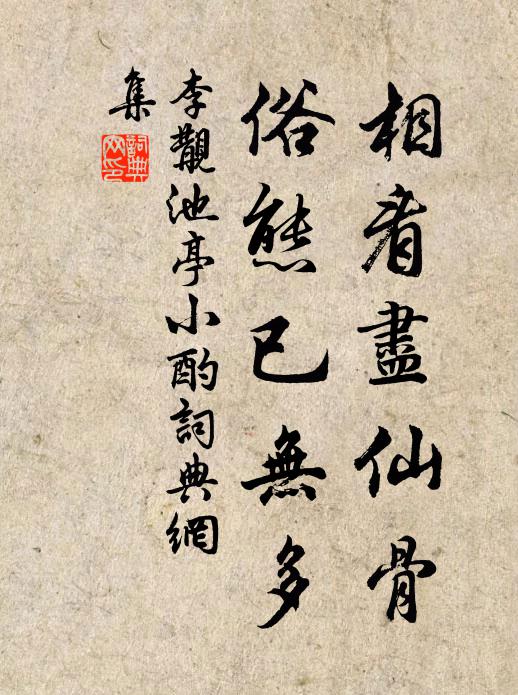 相看盡仙骨
俗態已無多
李覯池亭小酌詞典網
集
詞典
网印